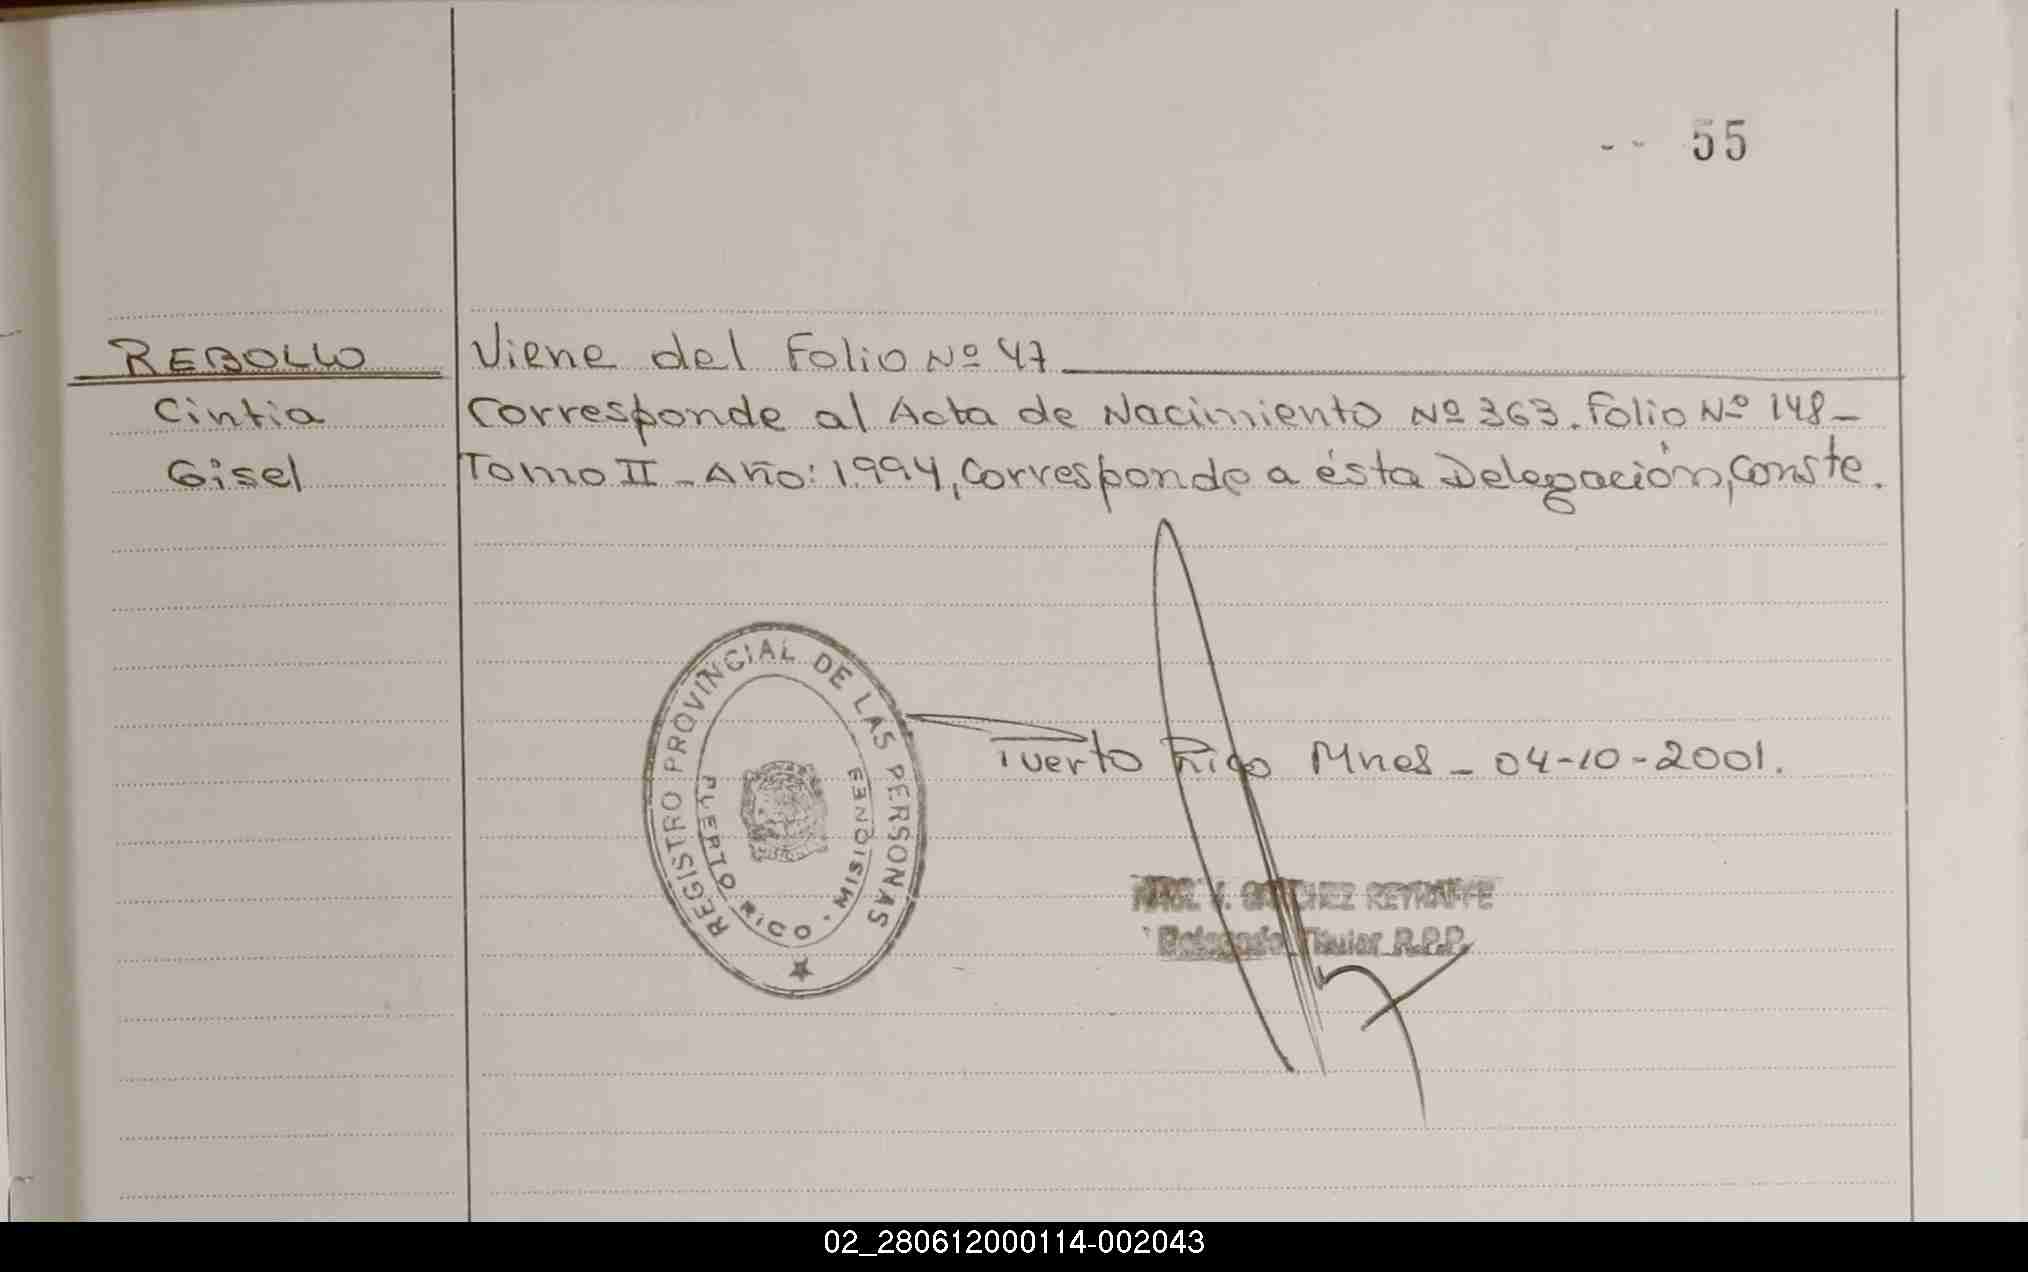 -- 55
REBOLLO
Viene del Folio Nº 47
Cintia
Corresponde al Acta de Nacimiento Nº 363. Folio Nº 148-
Gisel
Tomo II - Año: 1.994, Corresponde a ésta Delegación, Conste.
REGISTRO PROVINCIAL DE LAS PERSONAS
PUERTO RICO - MISIONES
Puerto Rico Mnes - 04-10-2001.
Delegado Titular R.P.P.
02_280612000114-002043